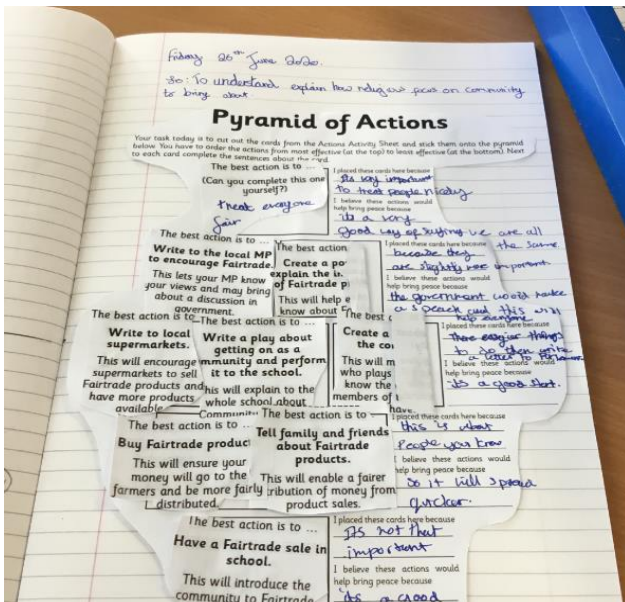 Friday 26th June 2020.
So: To understand explain how religious focus on community
to bring about
Pyramid of Actions
Your task today is to cut out the cards from the Actions Activity Sheet and stick them onto the pyramid
below. You have to order the actions from most effective (at the top) to least effective (at the bottom). Next
to each card complete the sentences about the card.
The best action is to ...
(Can you complete this one
yourself?)
treat everyone
fair
I placed these cards here because
Its very important
to treat people nicely
I believe these actions would
help bring peace because
its a very
good way of saying we are all
the same.
The best action is to ...
Write to the local MP
to encourage Fairtrade.
This lets your MP know
your views and may bring
about a discussion in
government.
The best action
Create a po
explain the i
of Fairtrade p
This will help e
know about F
I placed these cards here because
because they
are slightly important
I believe these actions would
help bring peace because
the government would make
a speach and this will
help everyone
The best action is to
Write to local
supermarkets.
This will encourage
supermarkets to sell
Fairtrade products and
have more products
available
The best action is to ...
Write a play about
getting on as a
mmunity and perform
it to the school.
his will explain to the
whole school about
Communit
The best
Create a
the co
This will m
who plays
know the
members of
have.
I placed these cards here because
to do then write
a letter to
I believe these actions would
help bring peace because
its a good start.
The best action is to ...
Buy Fairtrade produc
This will ensure your
money will go to the
farmers and be more fairly
distributed.
The best action is to
Tell family and friends
about Fairtrade
products.
This will enable a fairer
ribution of money from
product sales.
I placed these cards here because
this is about
people you know
I believe these actions would
help bring peace because
so it will spread
quicker.
The best action is to ...
Have a Fairtrade sale in
school.
This will introduce the
community to Fairtrade
I placed these cards here because
Its not that
important
I believe these actions would
help bring peace because
its a good